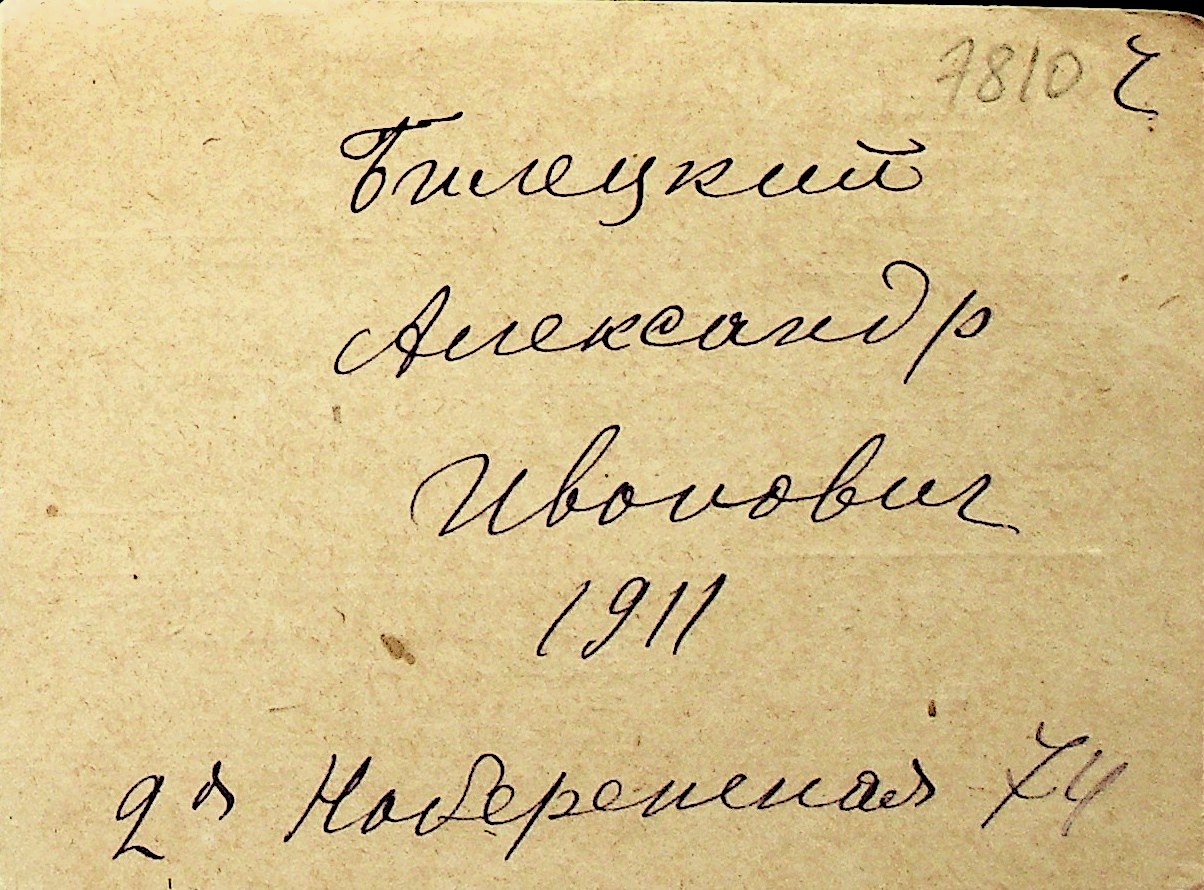 7810
Билецкий
Александр
Иванович
1911
2я Набережная 74